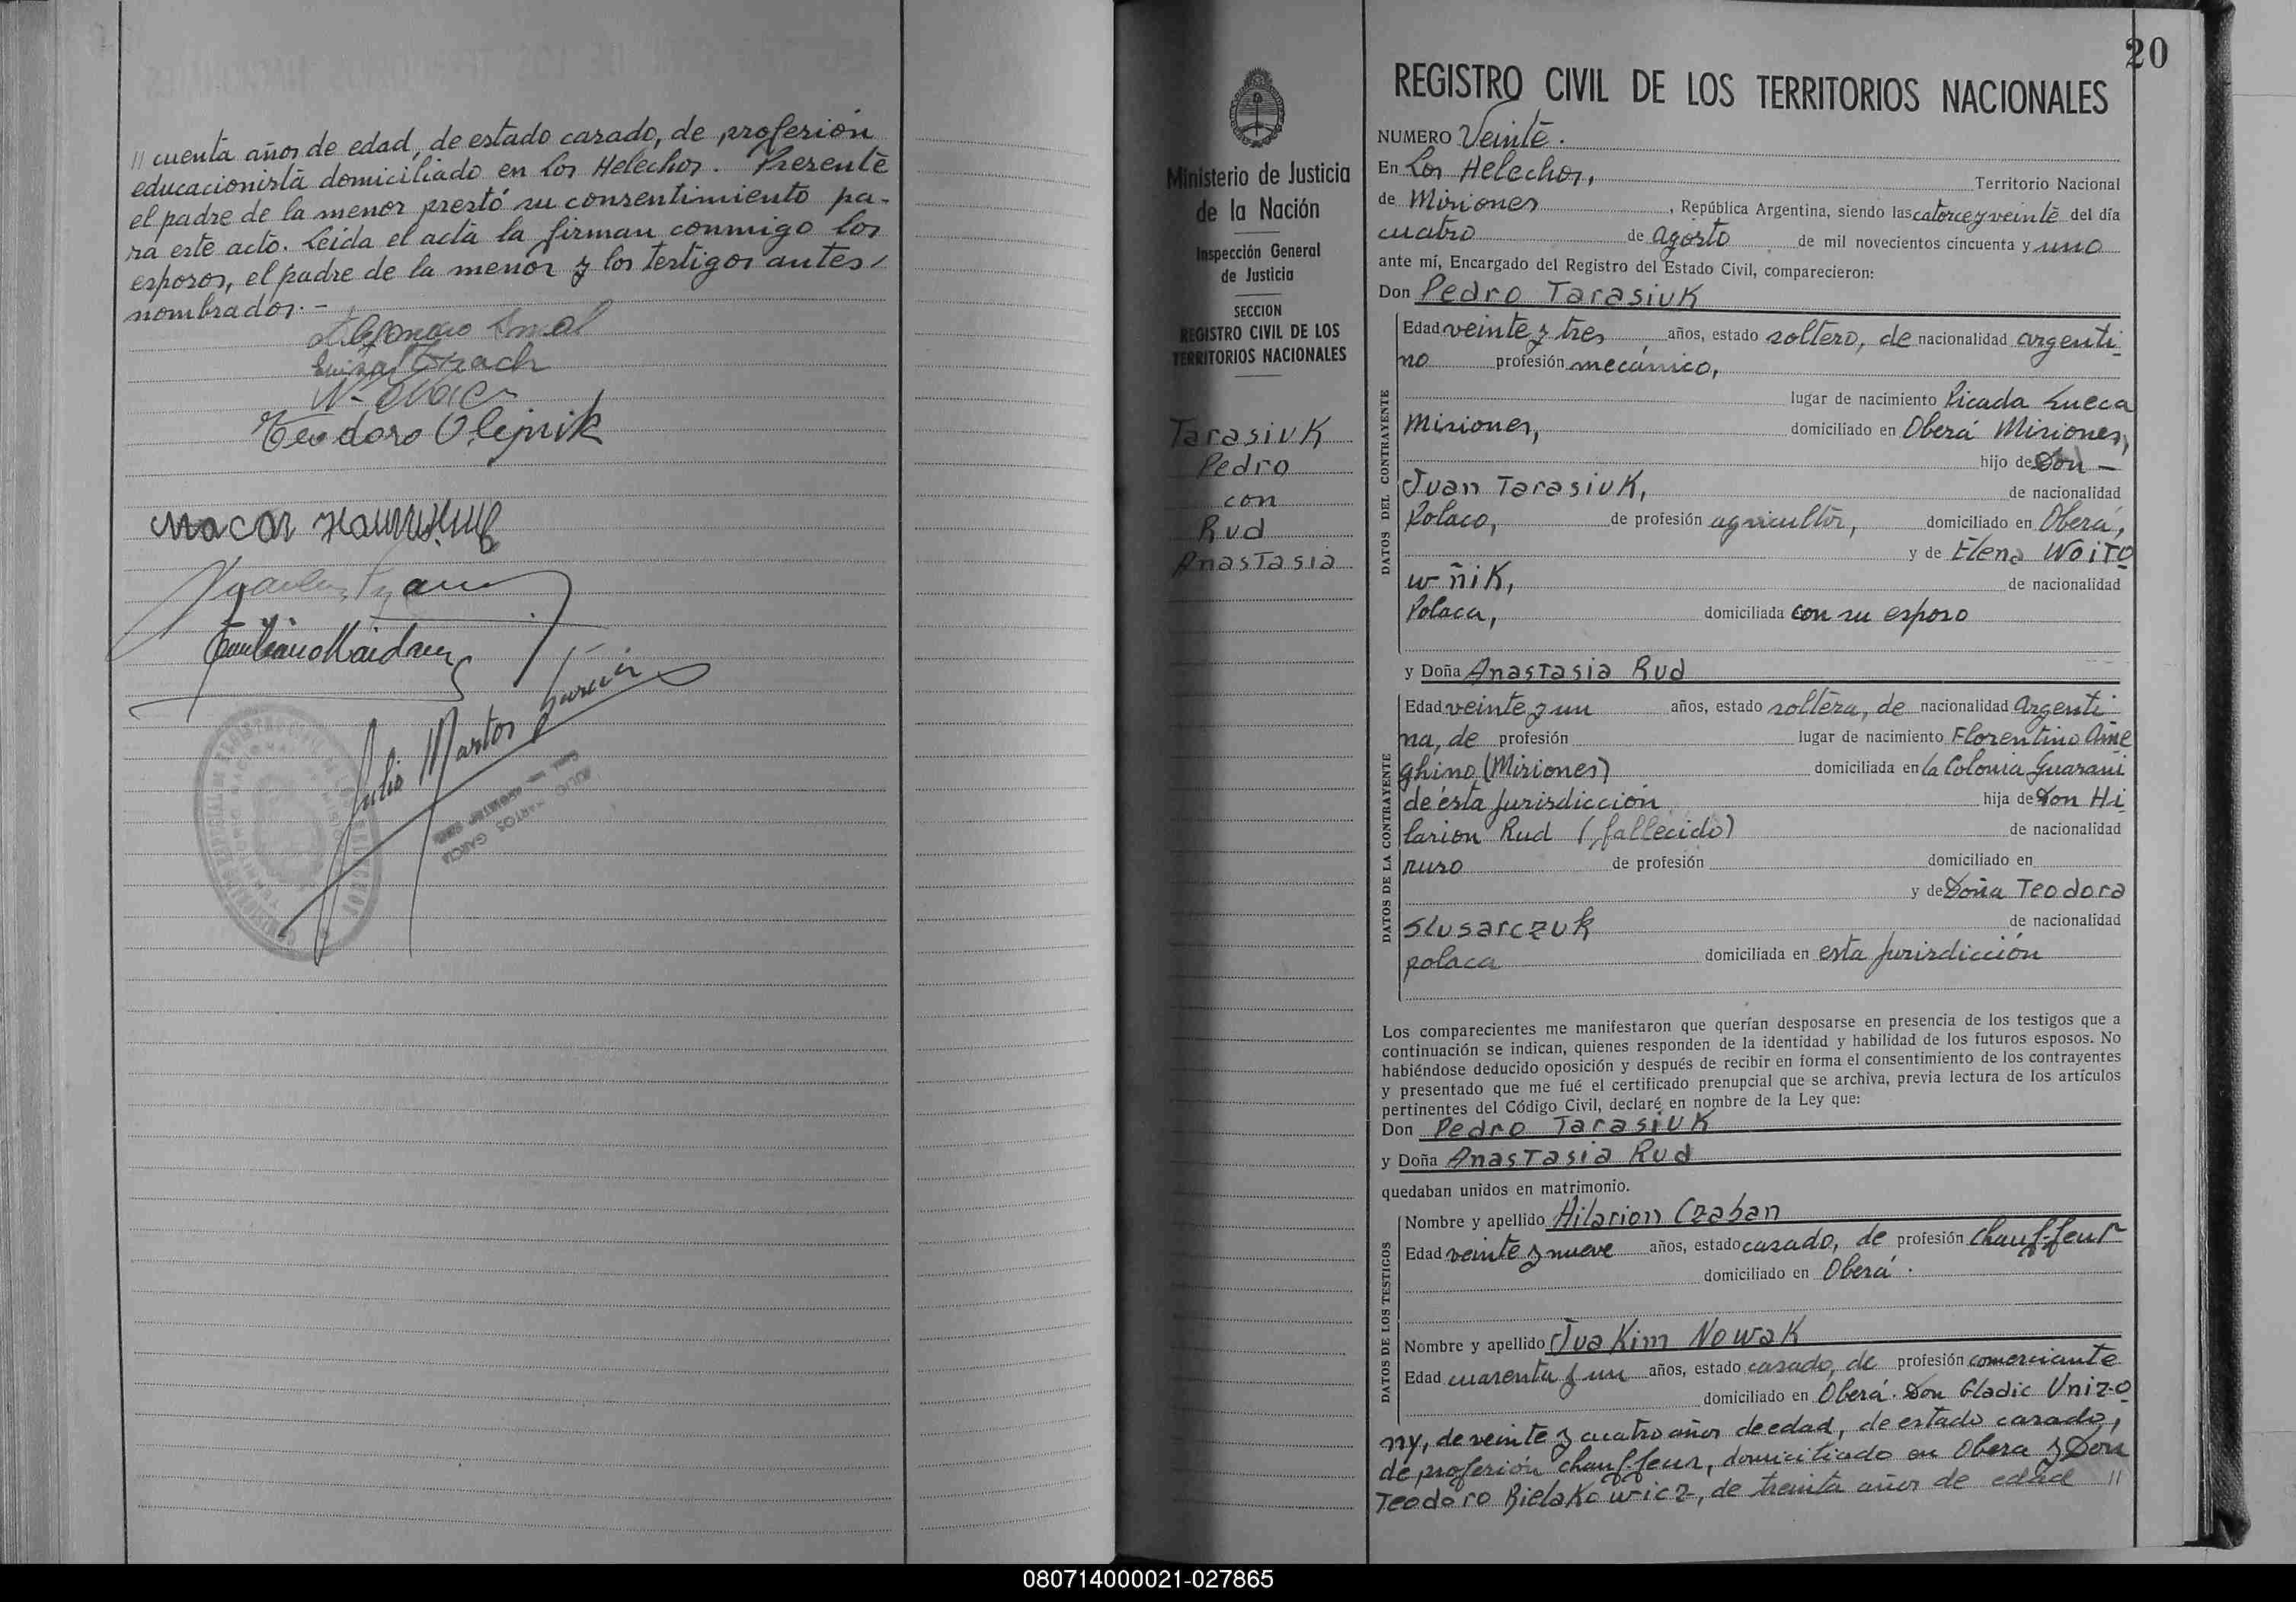 // cuenta años de edad, de estado casado, de profesión
educacionista domiciliado en Los Helechos. Presente
el padre de la menor prestó su consentimiento pa-
ra este acto. Leída el acta la firman conmigo los
esposos, el padre de la menor y los testigos antes
nombrados.-
Teodoro Olejnik
Julio Martos García
JULIO MARTOS GARCIA
20
REGISTRO CIVIL DE LOS TERRITORIOS NACIONALES
Ministerio de Justicia
de la Nación
Inspección General
de Justicia
SECCION
REGISTRO CIVIL DE LOS
TERRITORIOS NACIONALES
Tarasiuk
Pedro
con
Rud
Anastasia
NUMERO Veinte.
En Los Helechos, Territorio Nacional
de Misiones, República Argentina, siendo las catorce y veinte del día
cuatro de agosto de mil novecientos cincuenta y uno
ante mí, Encargado del Registro del Estado Civil, comparecieron:
Don Pedro Tarasiuk
DATOS DEL CONTRAYENTE
Edad veinte y tres años, estado soltero, de nacionalidad argenti
no profesión mecánico,
lugar de nacimiento Picada Sueca
Misiones, domiciliado en Oberá Misiones,
hijo de Don -
Juan Tarasiuk, de nacionalidad
Polaco, de profesión agricultor, domiciliado en Oberá,
y de Elena Woito
w-ñik, de nacionalidad
Polaca, domiciliada con su esposo
y Doña Anastasia Rud
DATOS DE LA CONTRAYENTE
Edad veinte y un años, estado soltera, de nacionalidad Argenti
na, de profesión lugar de nacimiento Florentino Ame
ghino (Misiones) domiciliada en la Colonia Guarani
de esta jurisdicción hija de Don Hi
larion Rud (fallecido) de nacionalidad
ruso de profesión domiciliado en
y de Doña Teodora
Slusarczuk de nacionalidad
polaca domiciliada en esta jurisdicción
Los comparecientes me manifestaron que querían desposarse en presencia de los testigos que a
continuación se indican, quienes responden de la identidad y habilidad de los futuros esposos. No
habiéndose deducido oposición y después de recibir en forma el consentimiento de los contrayentes
y presentado que me fué el certificado prenupcial que se archiva, previa lectura de los artículos
pertinentes del Código Civil, declaré en nombre de la Ley que:
Don Pedro Tarasiuk
y Doña Anastasia Rud
quedaban unidos en matrimonio.
DATOS DE LOS TESTIGOS
Nombre y apellido Hilarion Czaban
Edad veinte y nueve años, estado casado, de profesión chauffeur
domiciliado en Oberá.
Nombre y apellido Juakim Nowak
Edad cuarenta y un años, estado casado, de profesión comerciante
domiciliado en Oberá. Don Gladic Unizo
ny, de veinte y cuatro años de edad, de estado casado,
de profesión chauffeur, domiciliado en Obera y Don
Teodoro Bielakowicz, de treinta años de edad //
080714000021-027865